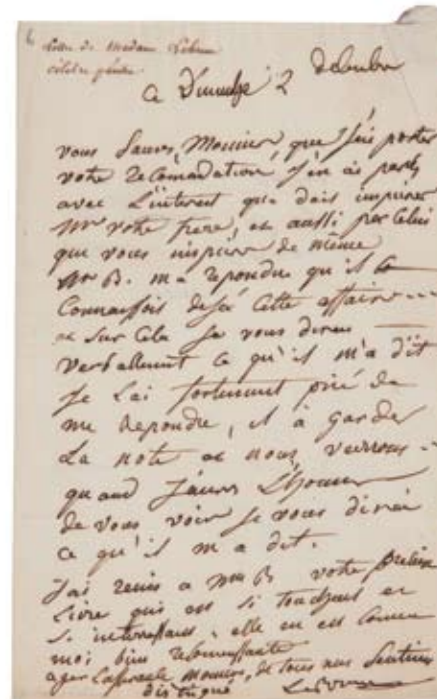 lettre de Madame Lebrun
célèbre peintre
Ce Dimanche 2
vous Saurez, Monsieur, que J'ai porter
votre recomandation, J'en ai parlé
avec L'interest que dois inspirer
Mr votre frere, et aussi par Celui
que vous inspirer de même
Mr B. m'a repondu qu'il
Connaissois desja Cette affaire
et Sur Cela Je vous direai
verballement Ce qu'il m'a dit
Je L'ai fortement prié de
me Repondre, il à garder
La note et nous verrons
quand J'aures L'honneur
de vous voir Je vous dirai
Ce qu'il m'a dit.
J'ai remis a Mme B votre
Livre qui est si touchant et
Si interressant, elle en est Comme
moi bien reconnoissante
Monsieur, de tous nos Sentimens
distingué Lebrun